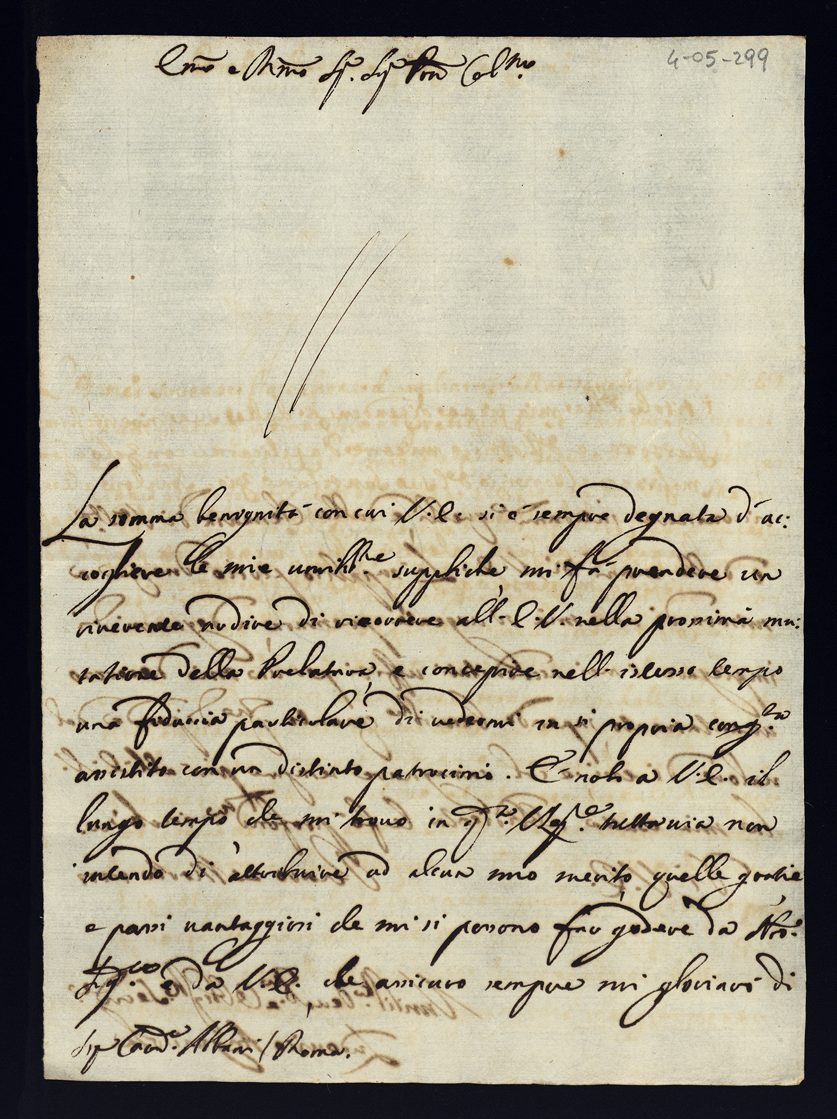 4-05-299
Emo e Rmo Sig. Sig Pron Colmo
La somma benignità con cui V.E. si è sempre degnata d'ac:
cogliere le mie umiliss.me suppliche mi fà prendere un
riverente ardire di ricorrere all'E.V. nella prossima mu:
tatione della Prelatura, e concepire nell'istesso tempo
una fiducia particolare di vedermi in sì propria cong.ra
assistito con un distinto patrocinio. È noto a V.E. il
lungo tempo che mi trovo in q.ta tuttavia non
intendo di attribuire ad alcun mio merito quelle gratie
e passi vantaggiosi che mi si possono far godere da Nro.
Sig.re e da V.E., che assicuro sempre mi gloriarò di
Sig Card.e Albani / Roma.